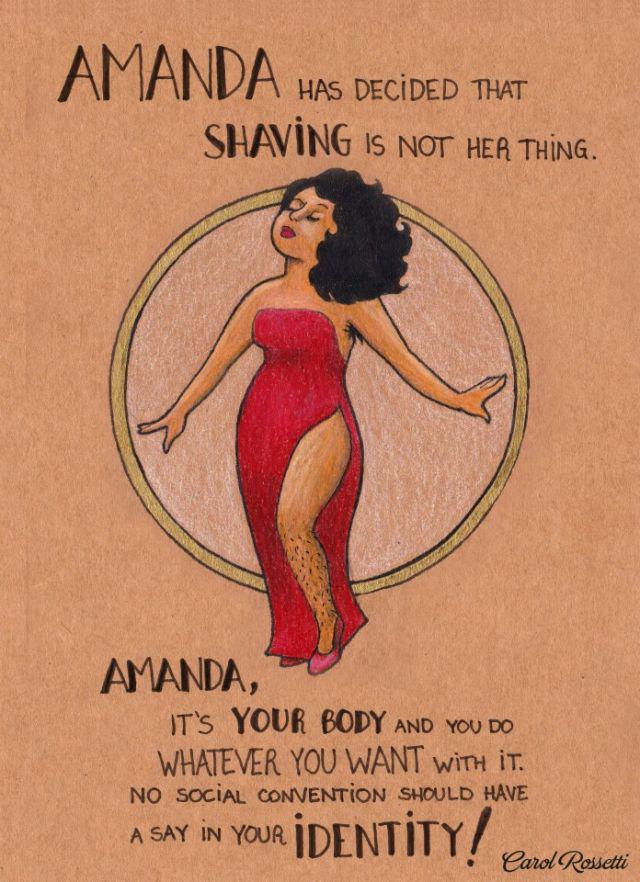 AMANDA HAS DECIDED THAT
SHAVING IS NOT HER THING.
AMANDA,
IT'S YOUR BODY AND YOU DO
WHATEVER YOU WANT WITH IT.
NO SOCIAL CONVENTION SHOULD HAVE
A SAY IN YOUR IDENTITY!
Carol Rossetti